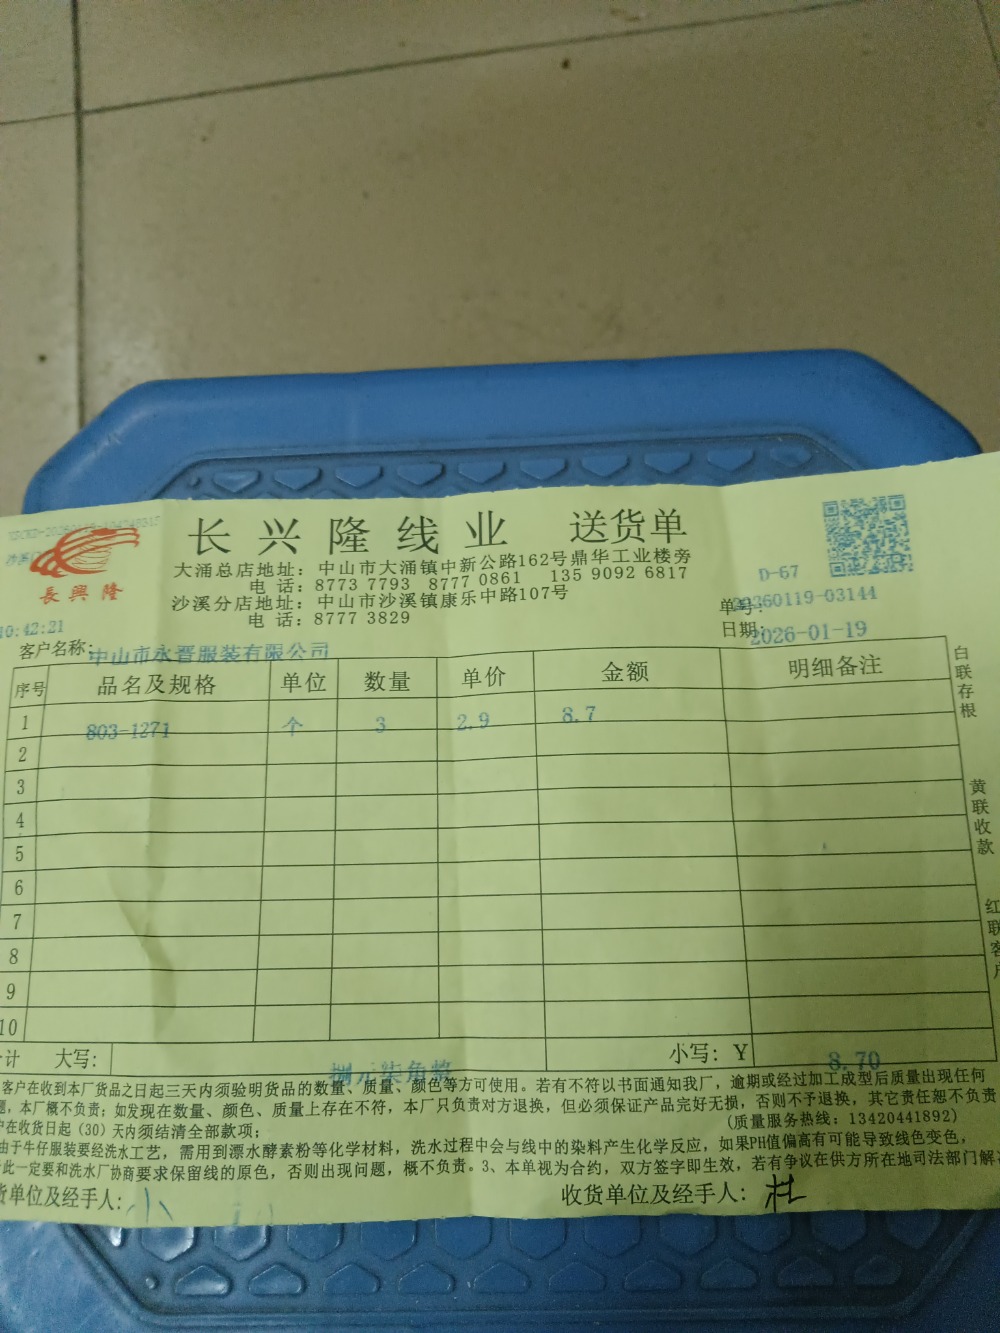 长兴隆线业 送货单
長興隆
大涌总店地址：中山市大涌镇中新公路162号鼎华工业楼旁
电 话：8773 7793 8777 0861 135 9092 6817
沙溪分店地址：中山市沙溪镇康乐中路107号
电 话：8777 3829
D-67
单号：20260119-03144
日期：2026-01-19
10:42:21
客户名称：中山市永晋服装有限公司
序号 品名及规格 单位 数量 单价 金额 明细备注
1 803-1271 个 3 2.9 8.7
2
3
4
5
6
7
8
9
10
计 大写： 捌元柒角整 小写：Y 8.70
白联存根
黄联收款
红联客户
客户在收到本厂货品之日起三天内须验明货品的数量、质量、颜色等方可使用。若有不符以书面通知我厂，逾期或经过加工成型后质量出现任何
题，本厂概不负责；如发现在数量、颜色、质量上存在不符，本厂只负责对方退换，但必须保证产品完好无损，否则不予退换，其它责任恕不负责
户在收货日起（30）天内须结清全部款项； （质量服务热线：13420441892）
由于牛仔服装要经洗水工艺，需用到漂水酵素粉等化学材料，洗水过程中会与线中的染料产生化学反应，如果PH值偏高有可能导致线色变色，
此一定要和洗水厂协商要求保留线的原色，否则出现问题，概不负责。3、本单视为合约，双方签字即生效，若有争议在供方所在地司法部门解
货单位及经手人：小
收货单位及经手人：杜